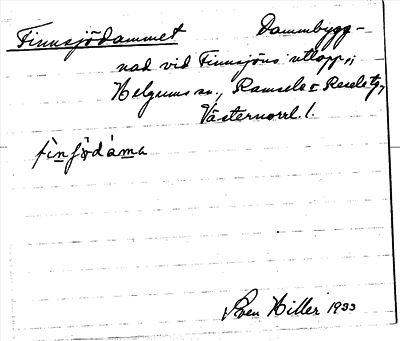 Finnsjödammet Dammbygg-
nad vid Finnsjöns utlopp,
Helgums sn, Ramsele o Resele tg,
Västernorrl. l.
finʃödáma
Sven Hiller 1933